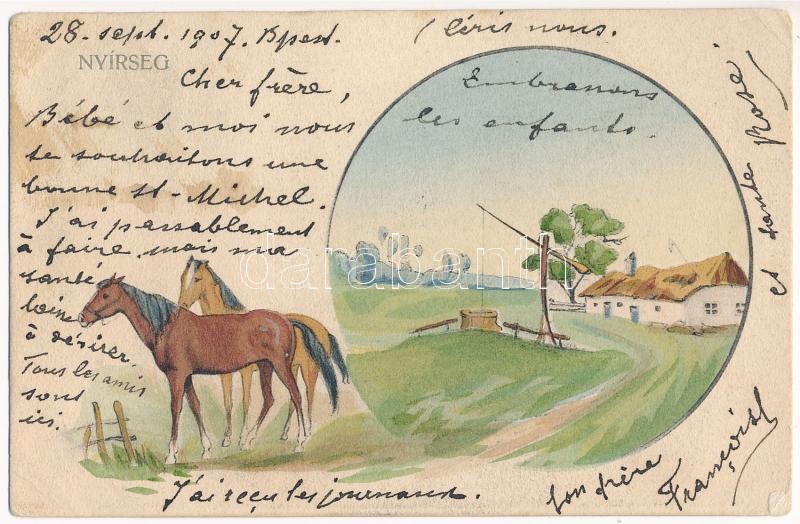 28. sept. 1907. Bpest.
NYÍRSÉG
Cher frère,
Bébé et moi nous
te souhaitons une
bonne St-Michel.
J'ai passablement
à faire, mais ma
santé
loin
à désirer.
Tous les amis
sont
ici.
J'ai reçu les journaux.
Écris nous.
Embrassons
les enfants.
et tante Rosa
ton frère
François
darabanth